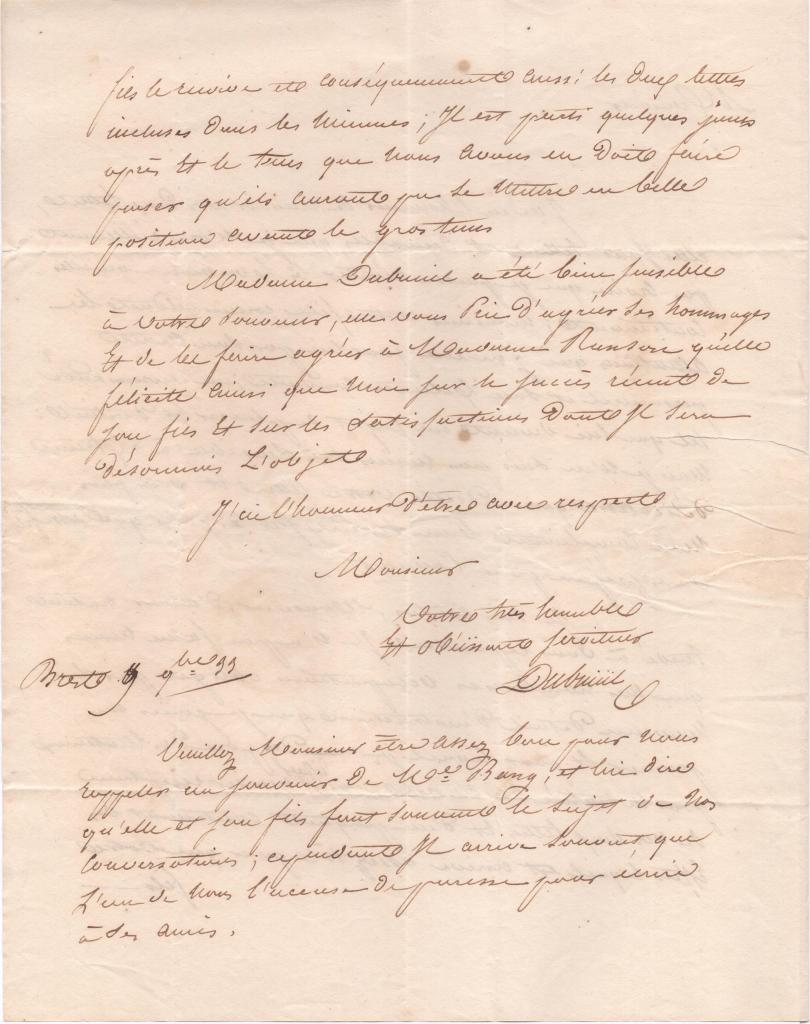 fils le suive et conséquemment aussi les deux lettres
incluses dans les miennes; Il est parti quelques jours
après Et le tems que nous avons eu Doit faire
penser qu'ils auront pu se mettre en belle
position avant le gros tems
Madame Dubreüil a été bien sensible
à votre souvenir, elle vous Prie D'agréer ses hommages
Et de les faire agréer à Madame Ranson qu'elle
félicite ainsi que moi sur le succès récent de
son fils Et sur les satisfactions Dont Il sera
désormais L'objet
J'ai l'honneur D'être avec respect
Monsieur
Votre très humble
Et obéissant serviteur
Dubreüil
Brest 9 9bre 33
Veuillez Monsieur être assez bon pour nous
rappeler au souvenir De Me Bang, et lui dire
qu'elle et son fils font souvent le sujet de nos
conversations; cependant Il arrive souvent que
L'un de nous l'accuse de paresse pour écrire
à ses amis.